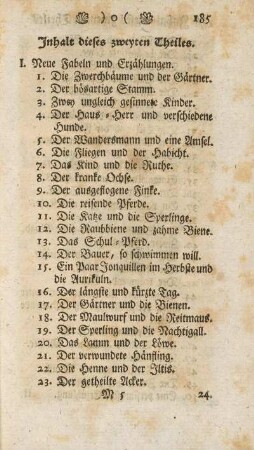 ) o ( 185
Inhalt dieses zweyten Theiles.
I. Neue Fabeln und Erzählungen.
1. Die Zwerchbäume und der Gärtner.
2. Der bösartige Stamm.
3. Zwey ungleich gesinnete Kinder.
4. Der Haus-Herr und verschiedene
Hunde.
5. Der Wandersmann und eine Amsel.
6. Die Fliegen und der Habicht.
7. Das Kind und die Ruthe.
8. Der kranke Ochse.
9. Der ausgeflogene Finke.
10. Die reisende Pferde.
11. Die Katze und die Sperlinge.
12. Die Raubbiene und zahme Biene.
13. Das Schul-Pferd.
14. Der Bauer, so schwimmen will.
15. Ein Paar Jonquillen im Herbste und
die Aurikuln.
16. Der längste und kürzte Tag.
17. Der Gärtner und die Bienen.
18. Der Maulwurf und die Reitmaus.
19. Der Sperling und die Nachtigall.
20. Das Lamm und der Löwe.
21. Der verwundete Hänfling.
22. Die Henne und der Iltis.
23. Der getheilte Acker.
M 5 24.